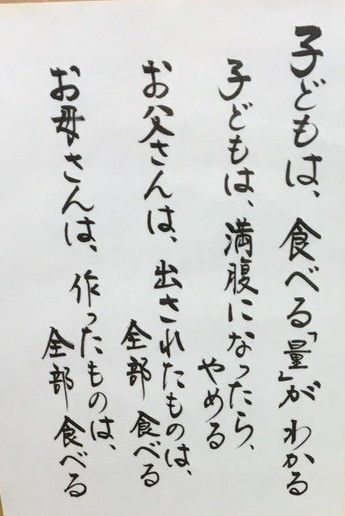 子どもは、食べる「量」がわかる
子どもは、満腹になったら、
やめる
お父さんは、出されたものは、
全部食べる
お母さんは、作ったものは、
全部食べる